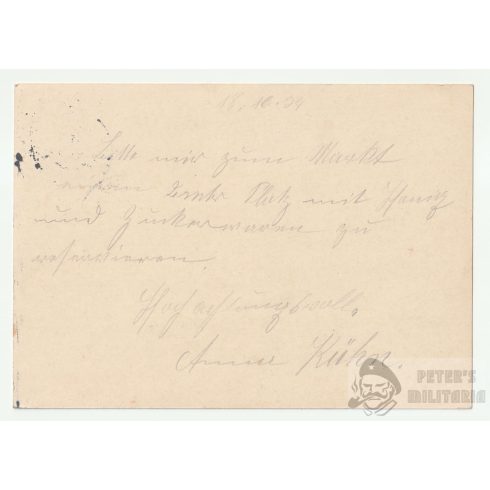 18.10.34
Bitte mir zum Markt
einen Platz mit Honig
und Zuckerwaren zu
reservieren.
Hochachtungsvoll.
Anna Kühn.
PETER'S
MILITARIA